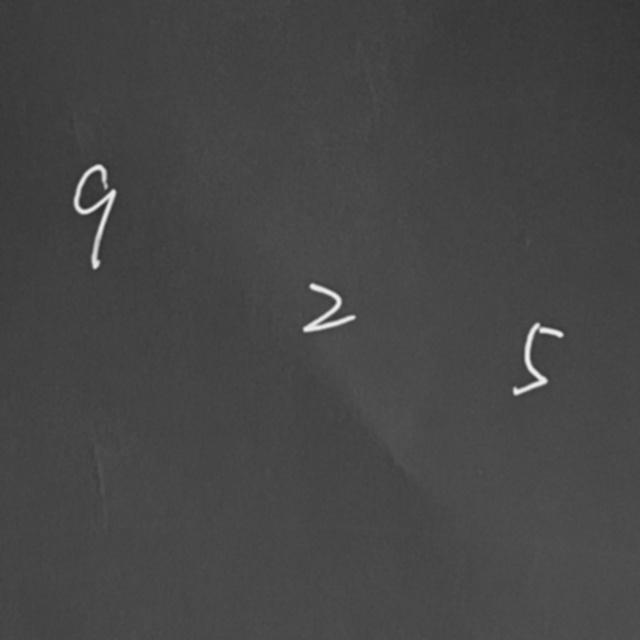 9
2
5